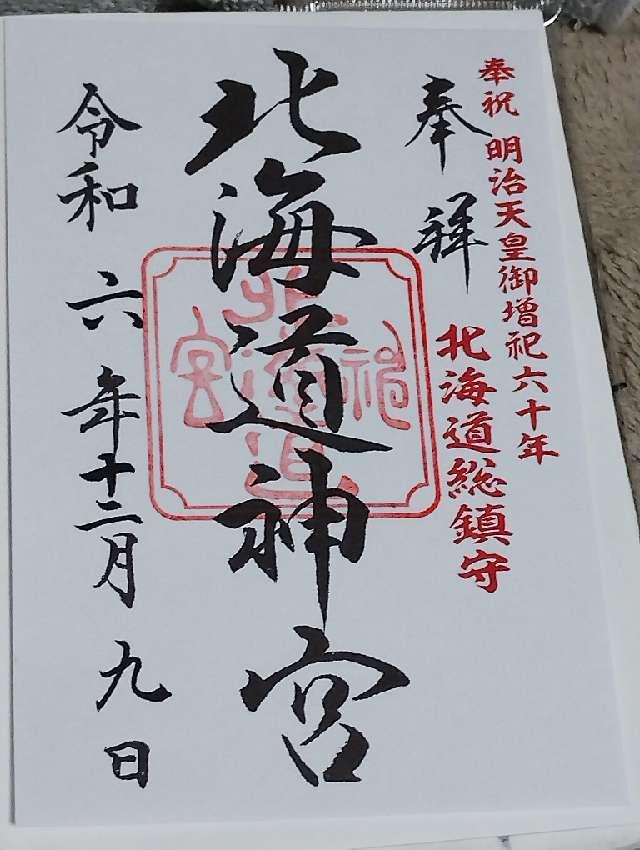 奉祝 明治天皇御増祀六十年
北海道総鎮守
奉拝
北海道神宮
令和六年十二月九日